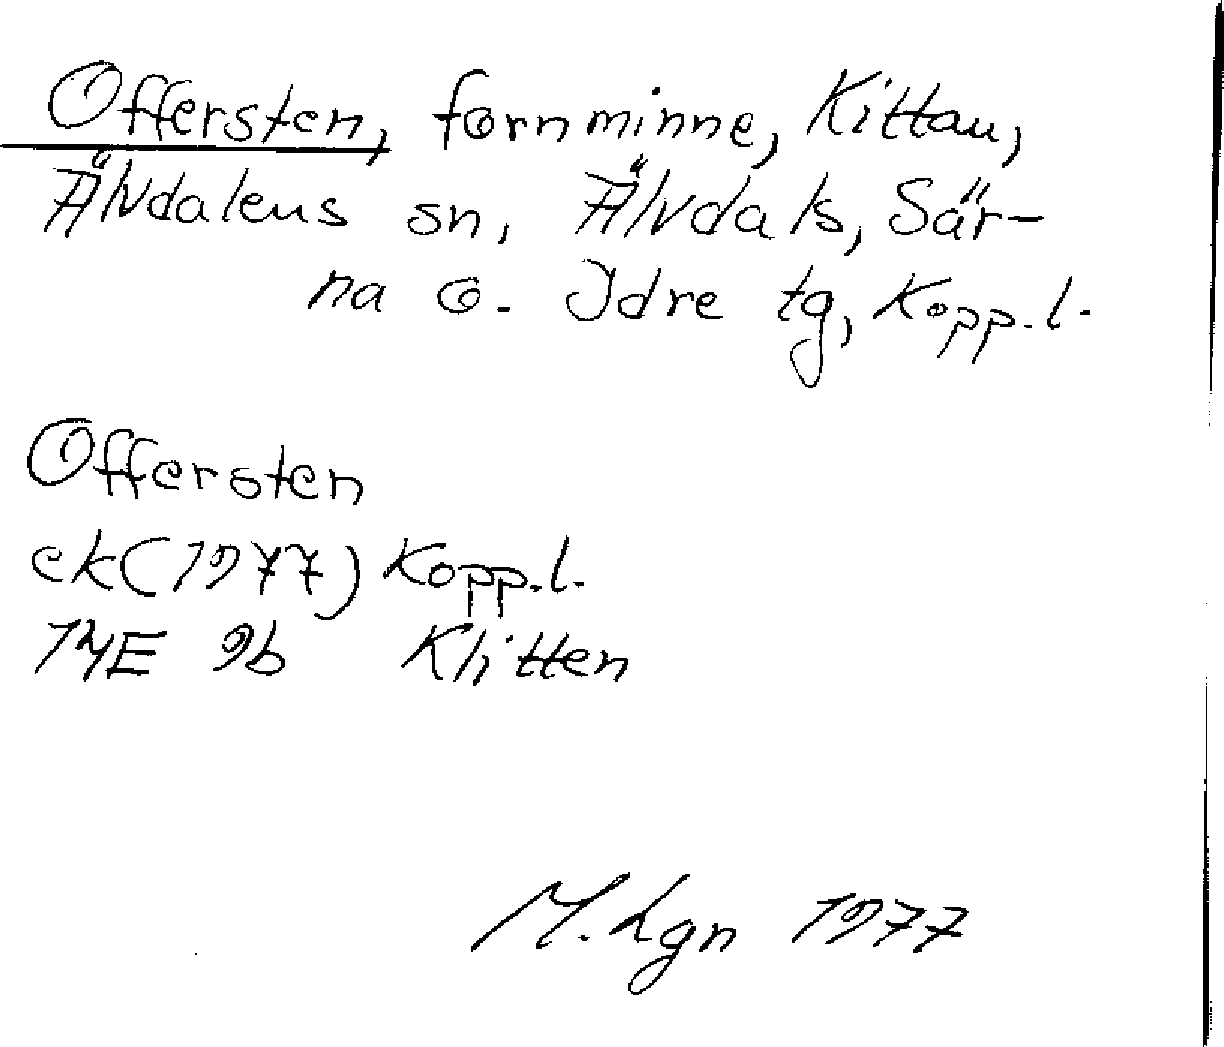 Offersten, fornminne, Kittau,
Älvdalens sn, Älvdals, Sär-
na o. Idre tg, Kopp.l.
Offersten
ek(1977) Kopp.l.
14E 9b Klitten
M.Lgn 1977